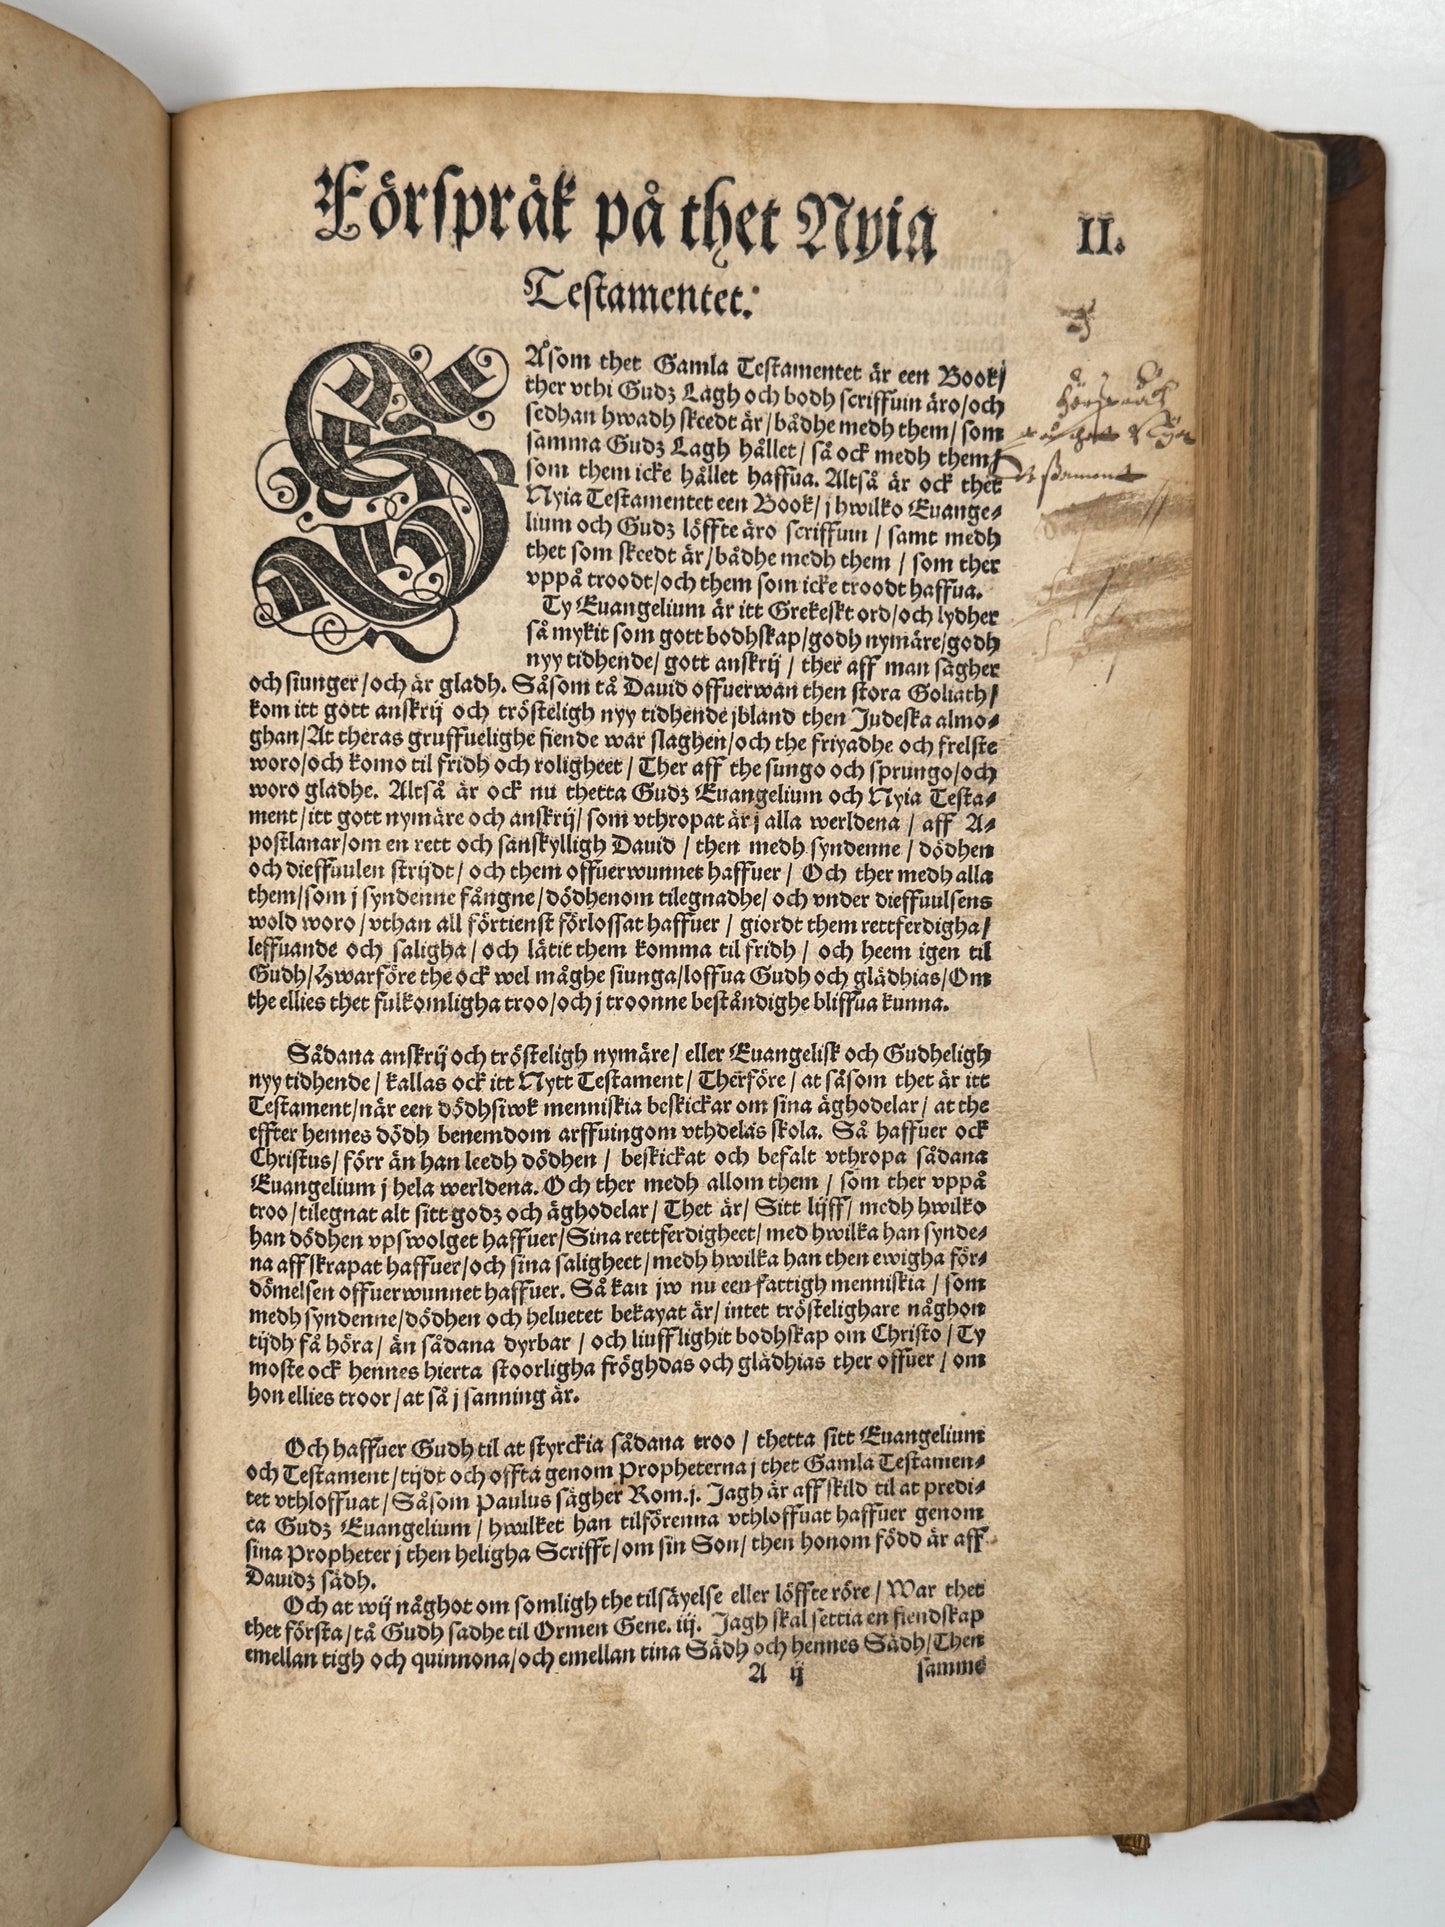 Förspråk på thet Nyia
II.
Testamentet.
SÅsom thet Gamla Testamentet är een Book/
ther vthi Gudz Lagh och bodh scriffuin äro/och
sedhan hwadh skeedt är/bådhe medh them/som
samma Gudz Lagh hållet/så ock medh them/
som them icke hållet haffua. Altså är ock thet
Nyia Testamentet een Book/j hwilko Euange⸗
lium och Gudz löffte äro scriffuin/samt medh
thet som skeedt är/bådhe medh them/som ther
vppå troodt/och them som icke troodt haffua.
Ty Euangelium är itt Grekeskt ord/och lydher
så mykit som gott bodhskap/godh nymäre/godh
nyy tidhende/gott anskrij/ther aff man sägher
och siunger/och är gladh. Såsom tå Dauid offuerwan then stora Goliath/
kom itt gott anskrij och trösteligh nyy tidhende jbland then Judeska almo⸗
ghan/At theras gruffuelighe fiende war slaghen/och the friyadhe och frelste
woro/och komo til fridh och roligheet/Ther aff the sungo och sprungo/och
woro gladhe. Altså är ock nu thetta Gudz Euangelium och Nyia Testa⸗
ment/itt gott nymäre och anskrij/som vthropat är j alla werldena/aff A⸗
postlanar/om en rett och sanskylligh Dauid/then medh syndenne/dödhen
och dieffuulen strijdt/och them offuerwunnet haffuer/Och ther medh alla
them/som j syndenne fångne/dödhenom tilegnadhe/och vnder dieffuulsens
wold woro/vthan all förtienst förlossat haffuer/giordt them rettferdigha/
leffuande och saligha/och lätit them komma til fridh/och heem igen til
Gudh/Hwarföre the ock wel måghe siunga/loffua Gudh och glädhias/Om
the ellies thet fulkomligha troo/och j troonne beståndighe bliffua kunna.
Sådana anskrij och trösteligh nymäre/eller Euangelisk och Gudheligh
nyy tidhende/kallas ock itt Nytt Testament/Therföre/at såsom thet är itt
Testament/när een dödhsiwk menniskia beskickar om sina äghodelar/at the
effter hennes dödh benemdom arffuingom vthdelas skola. Så haffuer ock
Christus/förr än han leedh dödhen/beskickat och befalt vthropa sådana
Euangelium j hela werldena. Och ther medh allom them/som ther vppå
troo/tilegnat alt sitt godz och äghodelar/Thet är/Sitt lijff/medh hwilko
han dödhen vpswolget haffuer/Sina rettferdigheet/med hwilka han synde⸗
na affskrapat haffuer/och sina saligheet/medh hwilka han then ewigha för⸗
dömelsen offuerwunnet haffuer. Så kan jw nu een fattigh menniskia/som
medh syndenne/dödhen och heluetet bekayat är/intet tröstelighare någhon
tijdh få höra/än sådana dyrbar/och liufflighit bodhskap om Christo/Ty
moste ock hennes hierta stoorligha fröghdas och glädhias ther offuer/om
hon ellies troor/at så j sanning är.
Och haffuer Gudh til at styrckia sådana troo/thetta sitt Euangelium
och Testament/tijdt och offta genom Propheterna j thet Gamla Testamen⸗
tet vthloffuat/Såsom Paulus sägher Rom.j. Jagh är affskild til at predi⸗
ka Gudz Euangelium/hwilket han tilförenna vthloffuat haffuer genom
sina Propheter j then heligha Scrifft/om sin Son/then honom född är aff
Dauidz sädh.
Och at wij någhot om somligh the tilsäyelse eller löffte röre/War thet
thet första/tå Gudh sadhe til Ormen Gene. iij. Jagh skal settia en fiendskap
emellan tigh och quinnona/och emellan tina Sädh och hennes Sädh/Then
A ij
samme
Förspråk
på thet Nyia
Testament